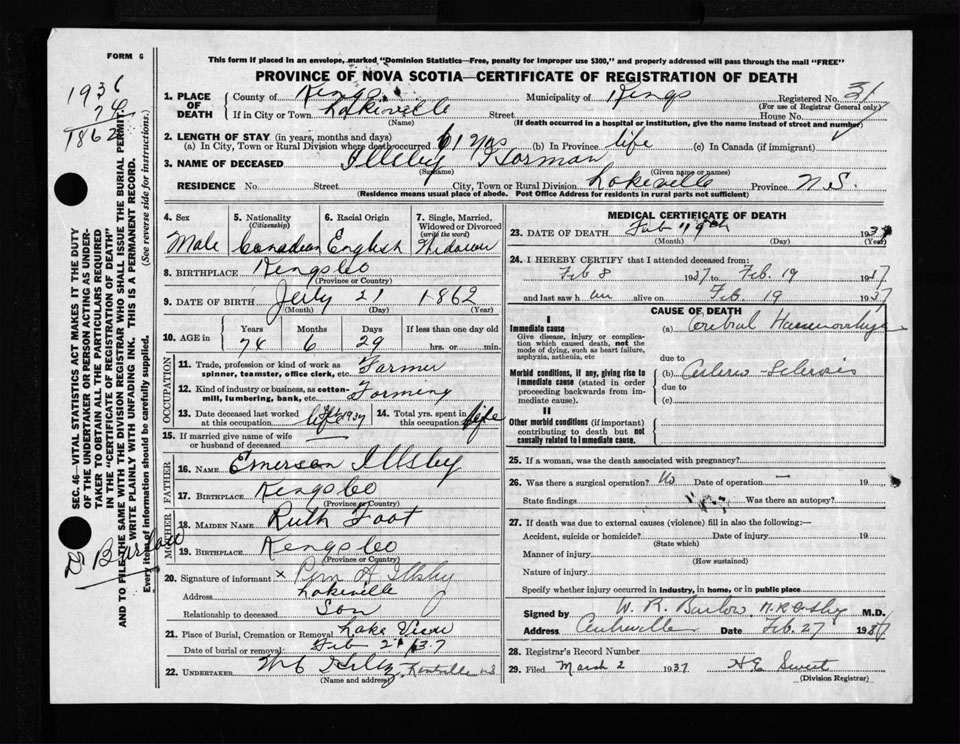 FORM 6
This form if mailed in an envelope, marked "Dominion Statistics—Free, penalty for improper use $300," and properly addressed will pass through the mail "FREE"
PROVINCE OF NOVA SCOTIA—CERTIFICATE OF REGISTRATION OF DEATH
1936
74
1862
1. PLACE OF DEATH
County of Kings Municipality of Kings Registered No. 31
(For use of Registrar General only)
If in City or Town Lakeville Street House No.
(Name) (If death occurred in a hospital or institution, give the name instead of street and number)
2. LENGTH OF STAY (in years, months and days)
(a) In City, Town or Rural Division where death occurred 61 yrs (b) In Province life (c) In Canada (if immigrant)
3. NAME OF DECEASED Illsley Norman
(Surname) (Given name or names)
RESIDENCE No. Street City, Town or Rural Division Lakeville Province N.S.
(Residence means usual place of abode. Post Office Address for residents in rural parts not sufficient)
4. Sex 5. Nationality 6. Racial Origin 7. Single, Married, Widowed or Divorced
(Citizenship) (write the word)
Male Canadian English Widower
8. BIRTHPLACE Kings Co
(Province or Country)
9. DATE OF BIRTH July 21 1862
(Month) (Day) (Year)
10. AGE in Years Months Days If less than one day old
74 6 29 hrs. or min.
OCCUPATION
11. Trade, profession or kind of work as spinner, teamster, office clerk, etc. Farmer
12. Kind of industry or business, as cotton-mill, lumbering, bank, etc. Farming
13. Date deceased last worked at this occupation 1937 14. Total yrs. spent in this occupation life
15. If married give name of wife or husband of deceased
FATHER
16. NAME Emerson Illsley
17. BIRTHPLACE Kings Co
(Province or Country)
MOTHER
18. MAIDEN NAME Ruth Foot
19. BIRTHPLACE Kings Co
(Province or Country)
20. Signature of informant x A Illsley
Address Lakeville
Relationship to deceased Son
21. Place of Burial, Cremation or Removal Lake View
Date of burial or removal Feb 37
22. UNDERTAKER Kentville NS
(Name and address)
MEDICAL CERTIFICATE OF DEATH
23. DATE OF DEATH Feb 19th 1937
(Month) (Day) (Year)
24. I HEREBY CERTIFY that I attended deceased from:
Feb 8 1937 to Feb. 19 1937
and last saw h im alive on Feb. 19 1937
CAUSE OF DEATH
I
Immediate cause
Give disease, injury or complication which caused death, not the mode of dying, such as heart failure, asphyxia, asthenia, etc
(a) Cerebral Haemorrhage
due to
Morbid conditions, if any, giving rise to immediate cause (stated in order proceeding backwards from immediate cause).
(b) Arterio-Sclerosis
due to
(c)
II
Other morbid conditions (if important) contributing to death but not causally related to immediate cause.
25. If a woman, was the death associated with pregnancy?
26. Was there a surgical operation? No Date of operation — 19
State findings Was there an autopsy?
27. If death was due to external causes (violence) fill in also the following:—
Accident, suicide or homicide? Date of injury 19
(State which)
Manner of injury
(How sustained)
Nature of injury
Specify whether injury occurred in industry, in home, or in public place
Signed by W. R. Barlow M.D.
Address Centreville Date Feb. 27 1937
28. Registrar's Record Number
29. Filed March 2 1937 H E Sweet
(Division Registrar)
SEC. 46—VITAL STATISTICS ACT MAKES IT THE DUTY
OF THE UNDERTAKER OR PERSON ACTING AS UNDER-
TAKER TO OBTAIN ALL THE PARTICULARS REQUIRED
IN THE "CERTIFICATE OF REGISTRATION OF DEATH"
AND TO FILE THE SAME WITH THE DIVISION REGISTRAR WHO SHALL ISSUE THE BURIAL PERMIT.
WRITE PLAINLY WITH UNFADING INK. THIS IS A PERMANENT RECORD.
Every item of information should be carefully supplied. (See reverse side for instructions.)
Dr Barlow